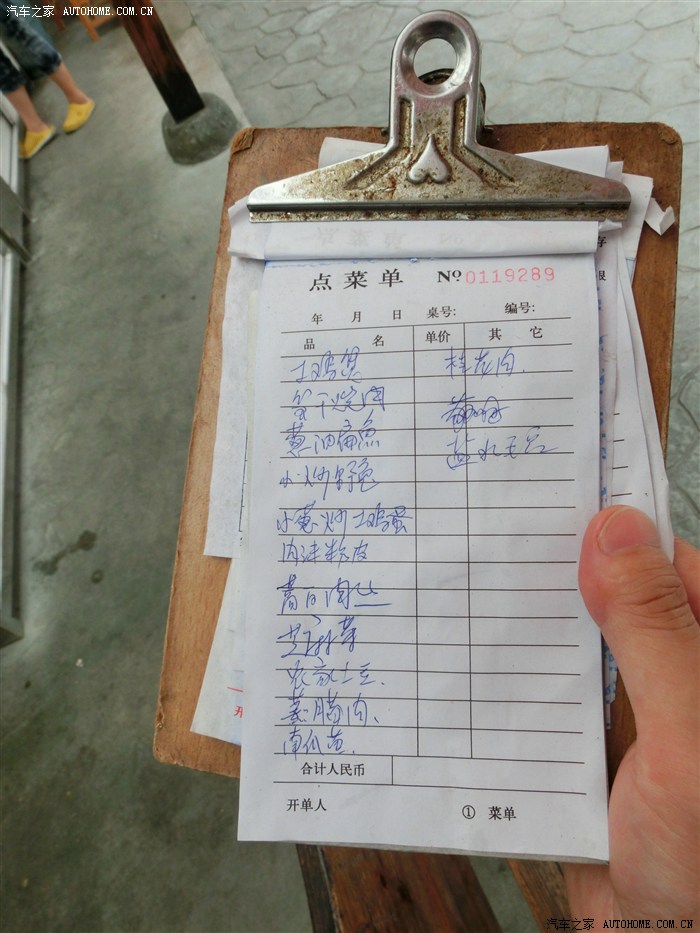 汽车之家 AUTOHOME.COM.CN
点菜单 № 0119289
年 月 日 桌号: 编号:
品 名 单价 其 它
土鸡煲 桂花肉.
笋干烧肉
葱油扁鱼 盐水毛豆
小炒野兔
小葱炒土鸡蛋
肉沫粉皮
青椒肉丝
农家土豆.
蒸腊肉.
南瓜
合计人民币
开单人 ① 菜单
汽车之家 AUTOHOME.COM.CN